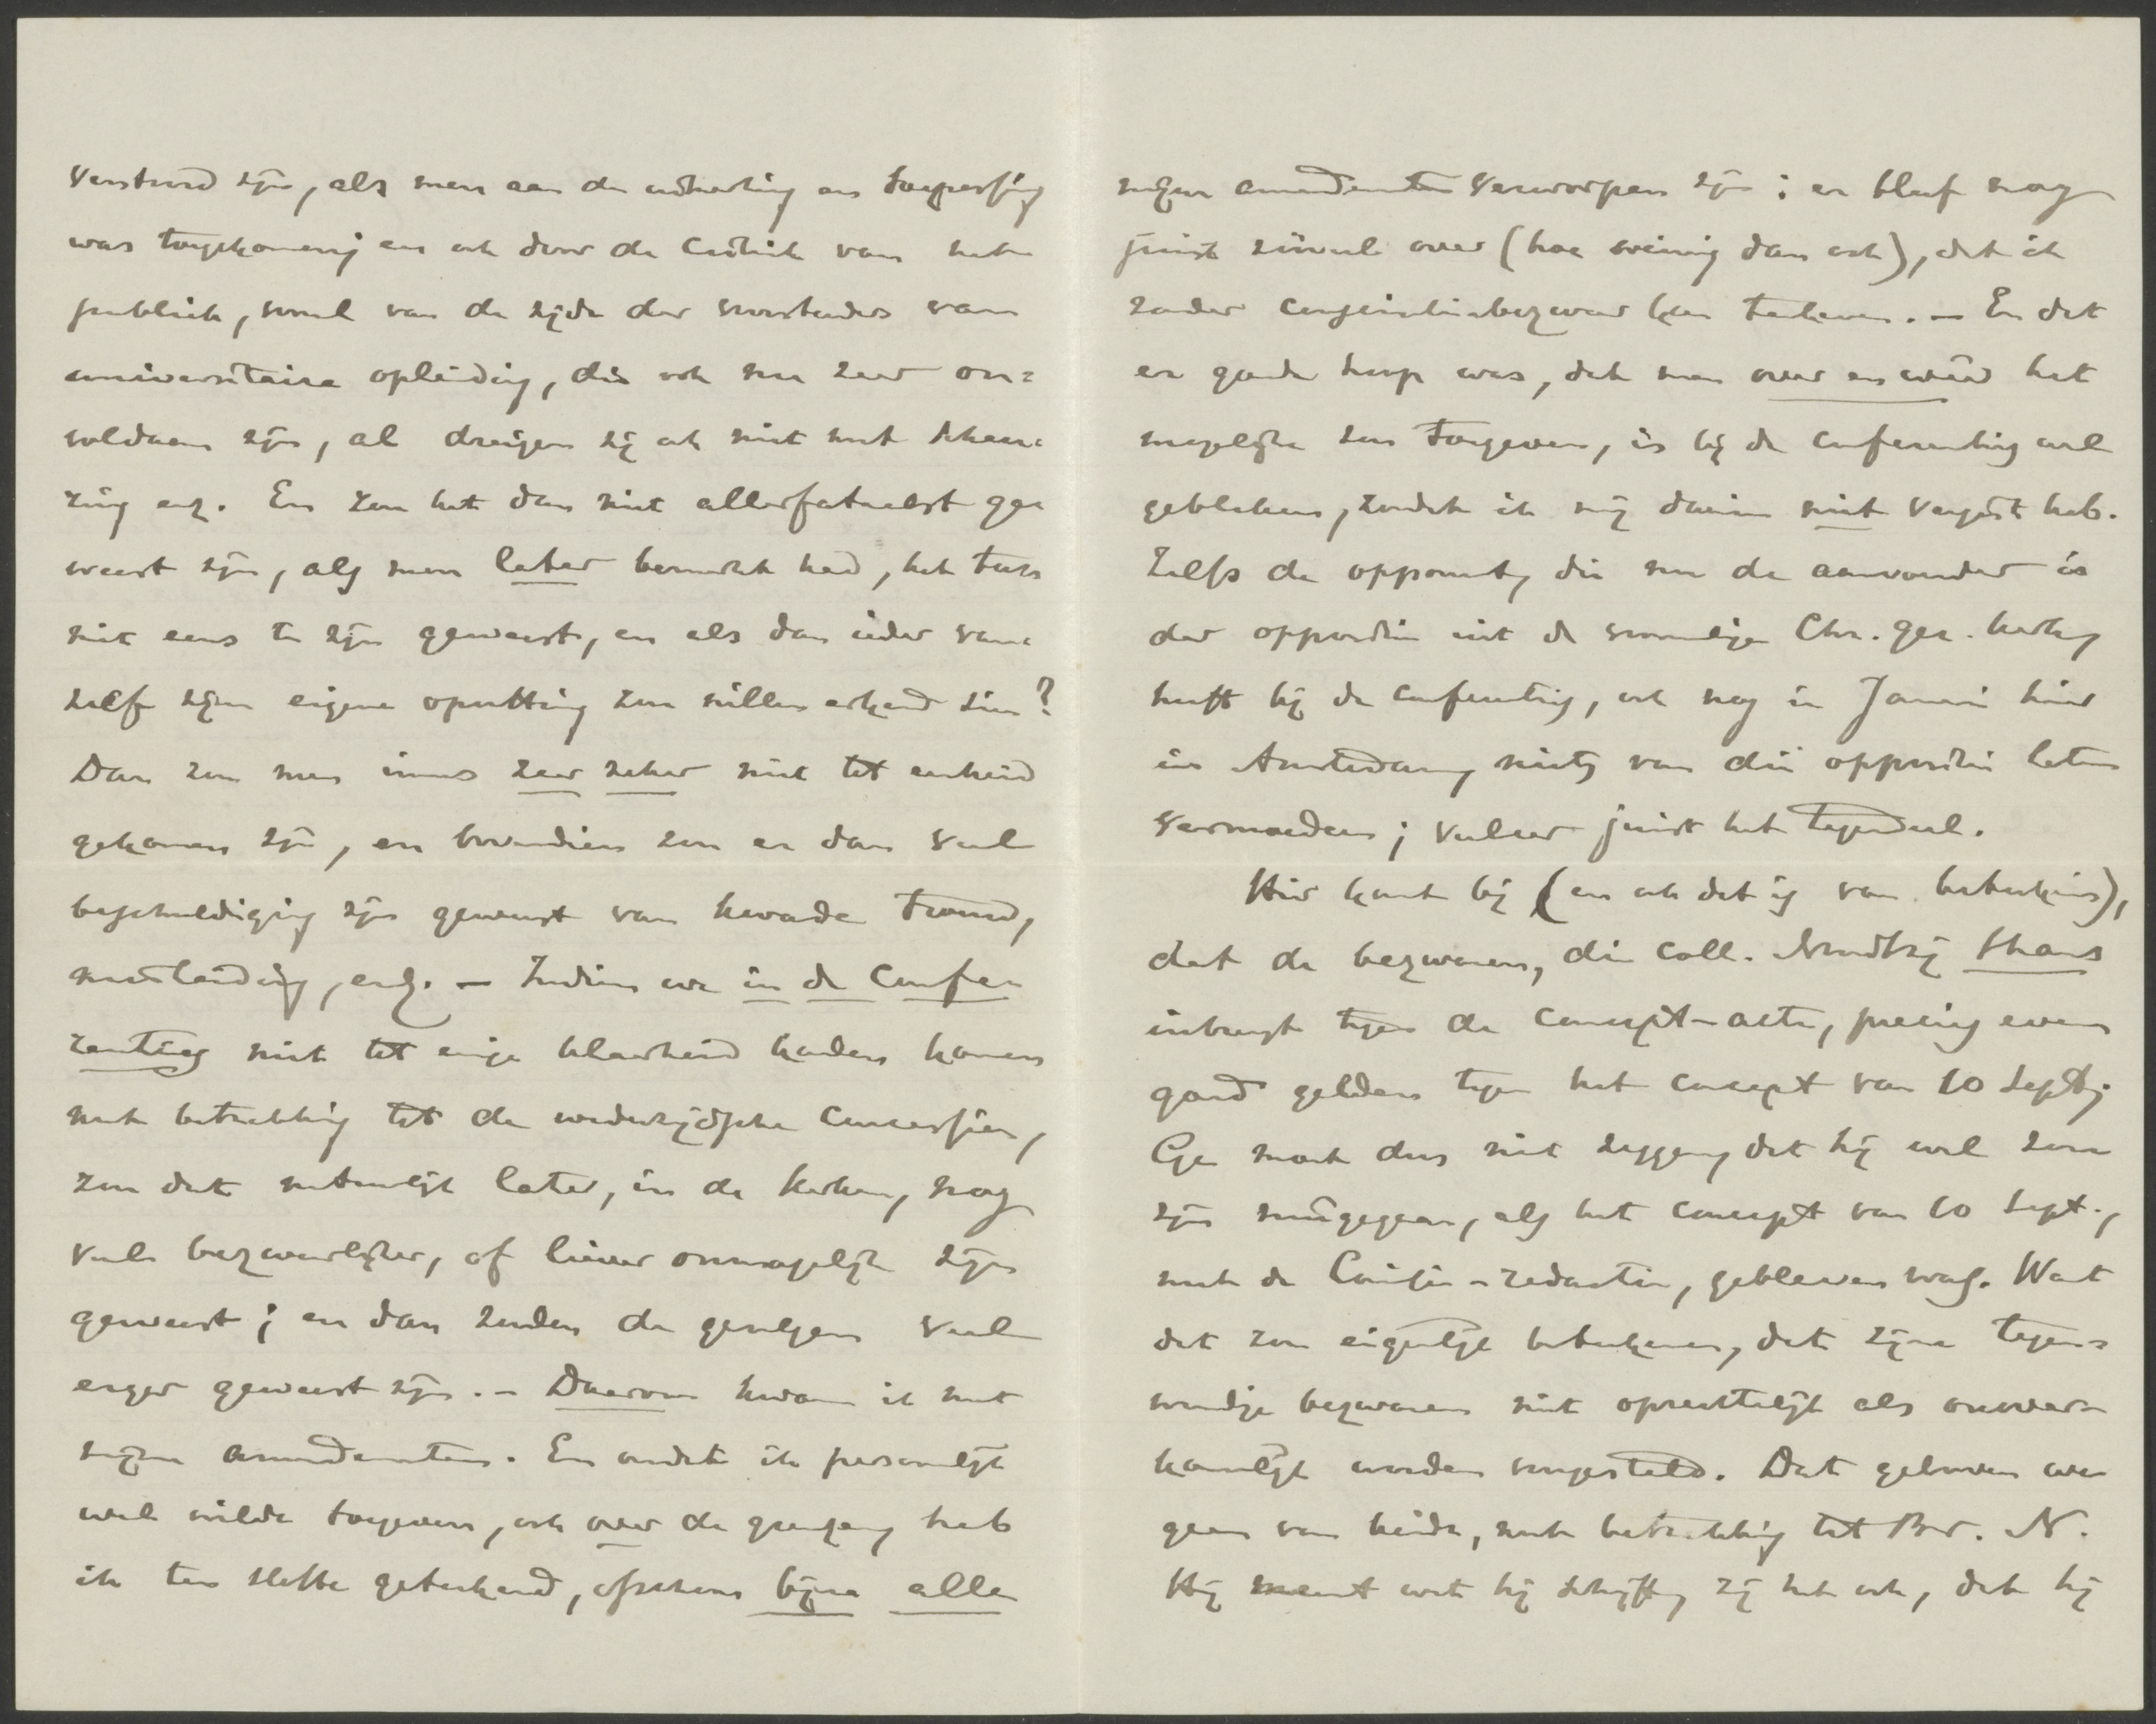 verstoord zijn, als men aan de uitwerking en toepassing
was toegekomen; en ook door de critiek van het
publiek, vooral van de zijde der voorstanders van
universitaire opleiding, die ook nu zeer on-
voldaan zijn, al dreigen zij ook niet met scheu-
ring enz. En zou het dan niet allerfataalst ge-
weest zijn, als men later bemerkt had, het toen
niet eens te zijn geweest, en als dan ieder van-
zelf zijne eigene opvatting zou willen erkend zien?
Dan zou men immers zeer zeker niet tot eenheid
gekomen zijn, en bovendien zou er dan veel
beschuldiging zijn geweest van kwade trouw,
misleiding, enz. – Indien we in de Confe-
rentie niet tot enige klaarheid hadden komen
met betrekking tot de wederzijdsche concessiën,
zou dat natuurlijk later, in de kerken, nog
veel bezwaarlijker, of liever onmogelijk zijn
geweest; en dan zouden de gevolgen veel
erger geweest zijn. – Daarom kwam ik met
mijne amendementen. En omdat ik persoonlijk
veel wilde toegeven, ook over de grenzen, heb
ik ten slotte geteekend, ofschoon bijna alle
mijne amendementen verworpen zijn; er bleef nog
juist zóóveel over (hoe weinig dan ook), dat ik
zonder conscientiebezwaar kon teekenen. – En dat
er goede hoop was, dat men over en weer het
mogelijke zou toegeven, is bij de conferentie wel
gebleken, zoodat ik mij daarin niet vergist heb.
Zelfs de opponent, die nu de aanvoerder is
der oppositie uit de voormalige Chr. ger. kerk,
heeft bij de conferentie, ook nog in Januari hier
in Amsterdam, niets van die oppositie laten
vermoeden; veeleer juist het tegendeel.
Hier komt bij (en ook dat is van beteekenis),
dat de bezwaren, die coll. Noordtzij thans
inbrengt tegen de concept-acte, precies even
goed gelden tegen het concept van 10 Sept.;
Ge moet dus niet zeggen, dat hij wel zou
zijn meegegaan, als het concept van 10 Sept.,
met de Cousin-redactie, gebleven was. Want
dat zou eigenlijk beteekenen, dat zijne tegen-
woordige bezwaren niet oprechtelijk als onover-
komelijk worden voorgesteld. Dat gelooven we
geen van beide, met betrekking tot Br. N.
Hij meent wat hij schrijft, zij het ook, dat hij